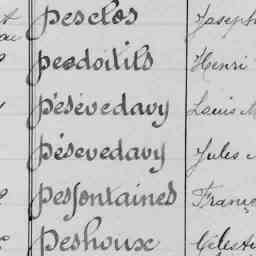 Desclos Joseph
Desdoitils Henri
Désévedavy Louis M
Désevedavy Jules
Desfontaines Franç
Deshoux Célesti